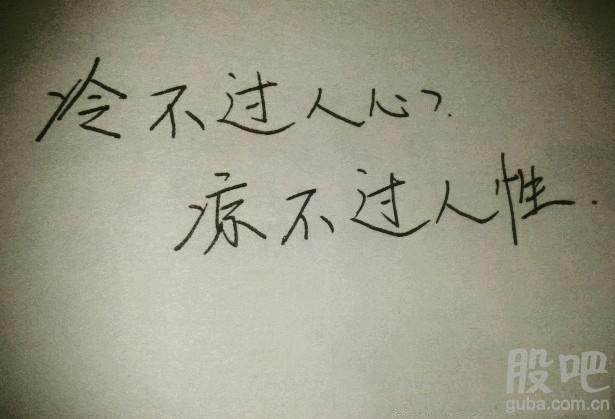 冷不过人心?.
凉不过人性.
股吧
guba.com.cn